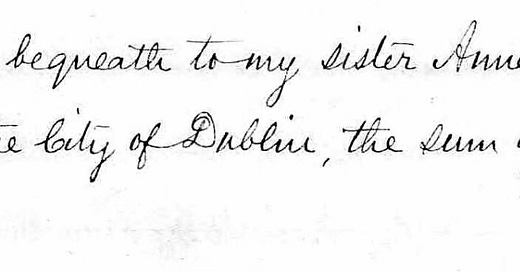 bequeath to my sister Anne
City of Dublin, the sum